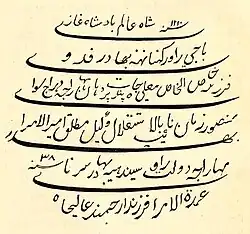 شاه عالم بادشاه غازی سنه
باجی راو رگناتهه بهادر فدوی
فرزند خاص الخاص معلی جاه پردهان مهاراجه دهراج راو
منصور زمان نایب بالاستقلال وکیل مطلق امیر الامرا
مهاراجه دولت راو سیندهیه بهادر سنه ۳۸
عمدة الامرا فرزند ارجمند عالیجاه